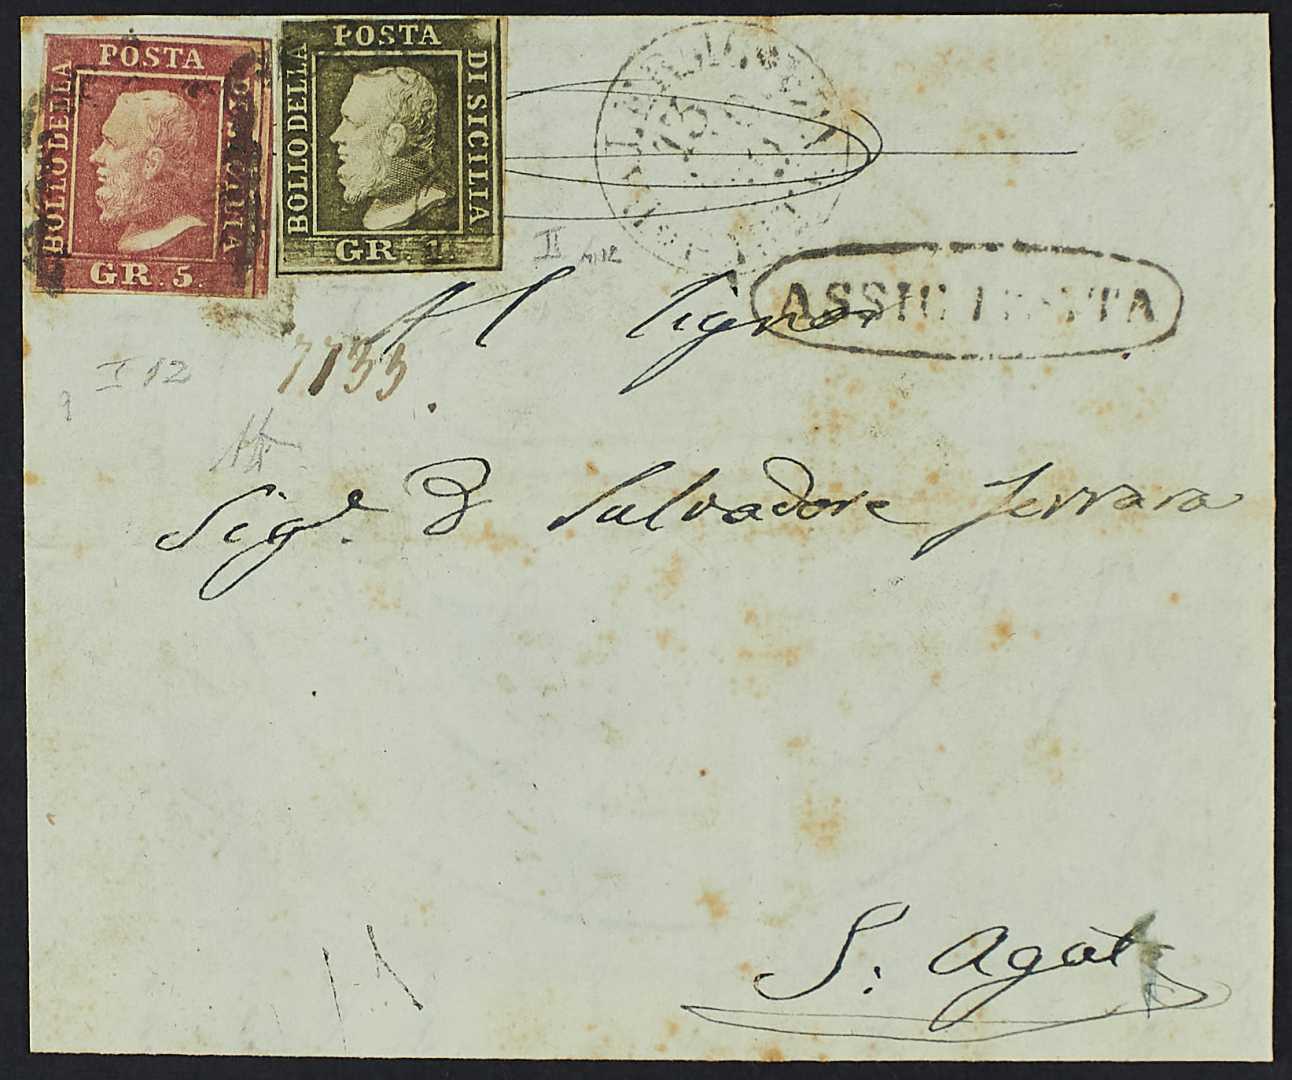 POSTA
BOLLO DELLA
DI SICILIA
GR. 5.
POSTA
BOLLO DELLA
DI SICILIA
GR. 1.
13
II
ASSICURATA
Al Signor
7733.
I 12
Sigr. D Salvadore Ferrara
S. Agata